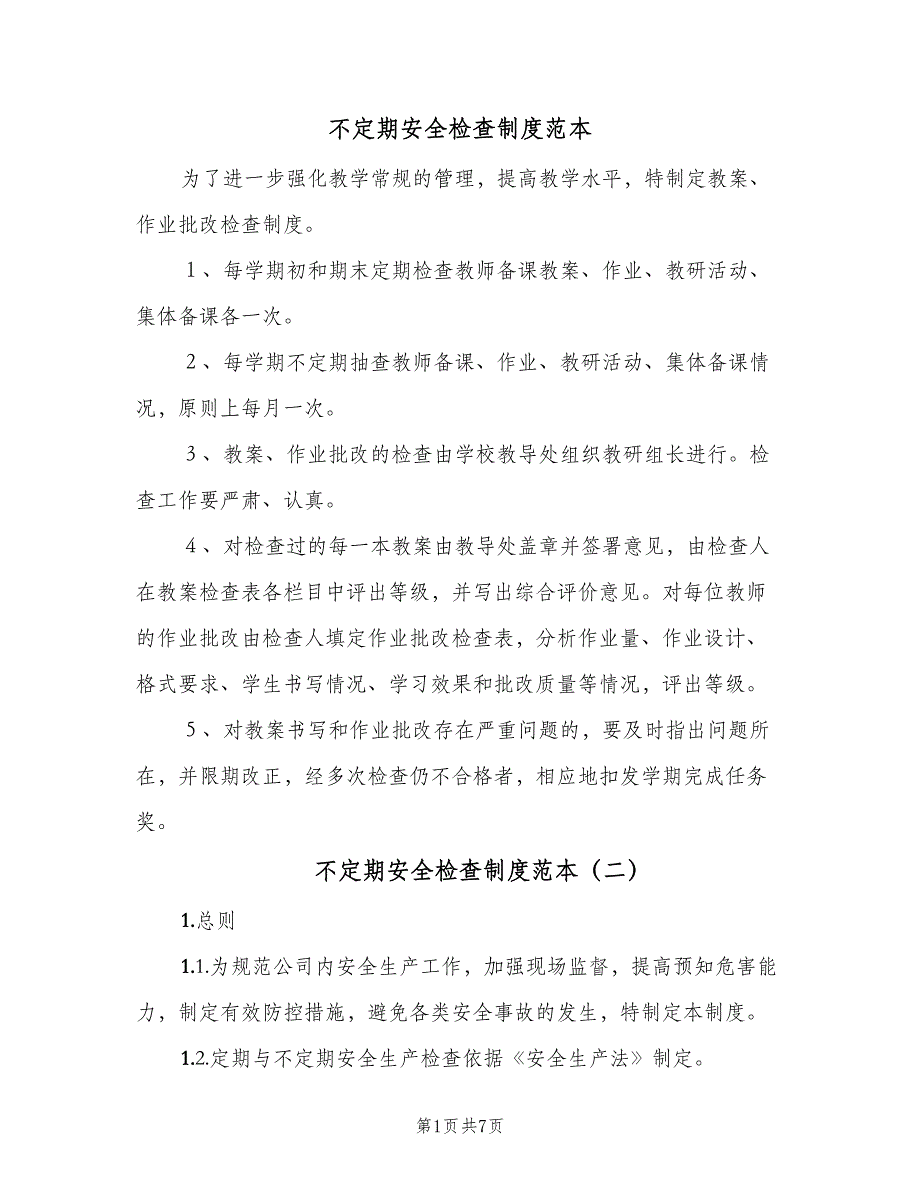 不定期安全检查制度范本
为了进一步强化教学常规的管理，提高教学水平，特制定教案、
作业批改检查制度。
１、每学期初和期末定期检查教师备课教案、作业、教研活动、
集体备课各一次。
２、每学期不定期抽查教师备课、作业、教研活动、集体备课情
况，原则上每月一次。
３、教案、作业批改的检查由学校教导处组织教研组长进行。检
查工作要严肃、认真。
４、对检查过的每一本教案由教导处盖章并签署意见，由检查人
在教案检查表各栏目中评出等级，并写出综合评价意见。对每位教师
的作业批改由检查人填定作业批改检查表，分析作业量、作业设计、
格式要求、学生书写情况、学习效果和批改质量等情况，评出等级。
５、对教案书写和作业批改存在严重问题的，要及时指出问题所
在，并限期改正，经多次检查仍不合格者，相应地扣发学期完成任务
奖。
不定期安全检查制度范本（二）
1.总则
1.1.为规范公司内安全生产工作，加强现场监督，提高预知危害能
力，制定有效防控措施，避免各类安全事故的发生，特制定本制度。
1.2.定期与不定期安全生产检查依据《安全生产法》制定。
第1页共7页